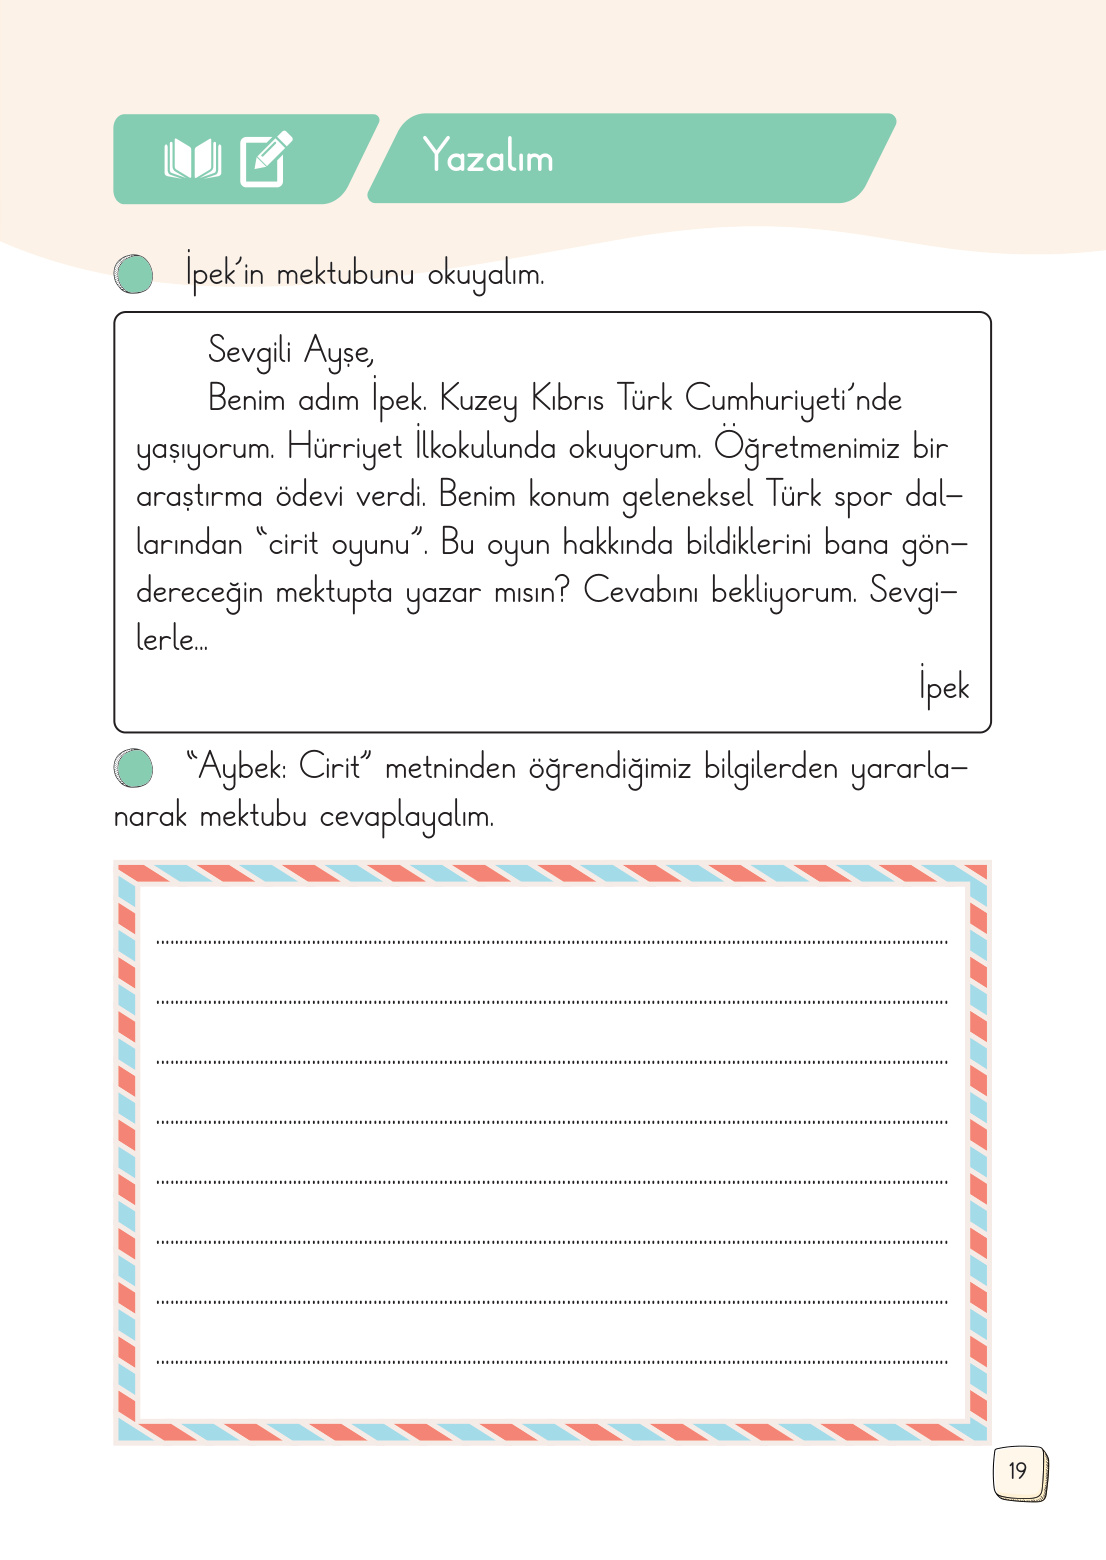 Yazalım
İpek’in mektubunu okuyalım.
Sevgili Ayşe,
Benim adım İpek. Kuzey Kıbrıs Türk Cumhuriyeti’nde
yaşıyorum. Hürriyet İlkokulunda okuyorum. Öğretmenimiz bir
araştırma ödevi verdi. Benim konum geleneksel Türk spor dal-
larından “cirit oyunu”. Bu oyun hakkında bildiklerini bana gön-
dereceğin mektupta yazar mısın? Cevabını bekliyorum. Sevgi-
lerle...
İpek
“Aybek: Cirit” metninden öğrendiğimiz bilgilerden yararla-
narak mektubu cevaplayalım.
19